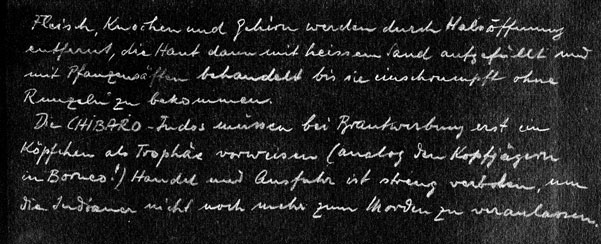 Fleisch, Knochen und Gehirn werden durch Halsöffnung
entfernt, die Haut dann mit heissem Sand aufgefüllt und
mit Pflanzensäften behandelt bis sie einschrumpft ohne
Runzeln zu bekommen.
Die CHIBARO-Indos müssen bei Brautwerbung erst ein
Köpfchen als Trophäe vorweisen (analog den Kopfjägern
in Borneo!) Handel und Ausfuhr ist streng verboten, um
die Indianer nicht noch mehr zum Morden zu veranlassen.